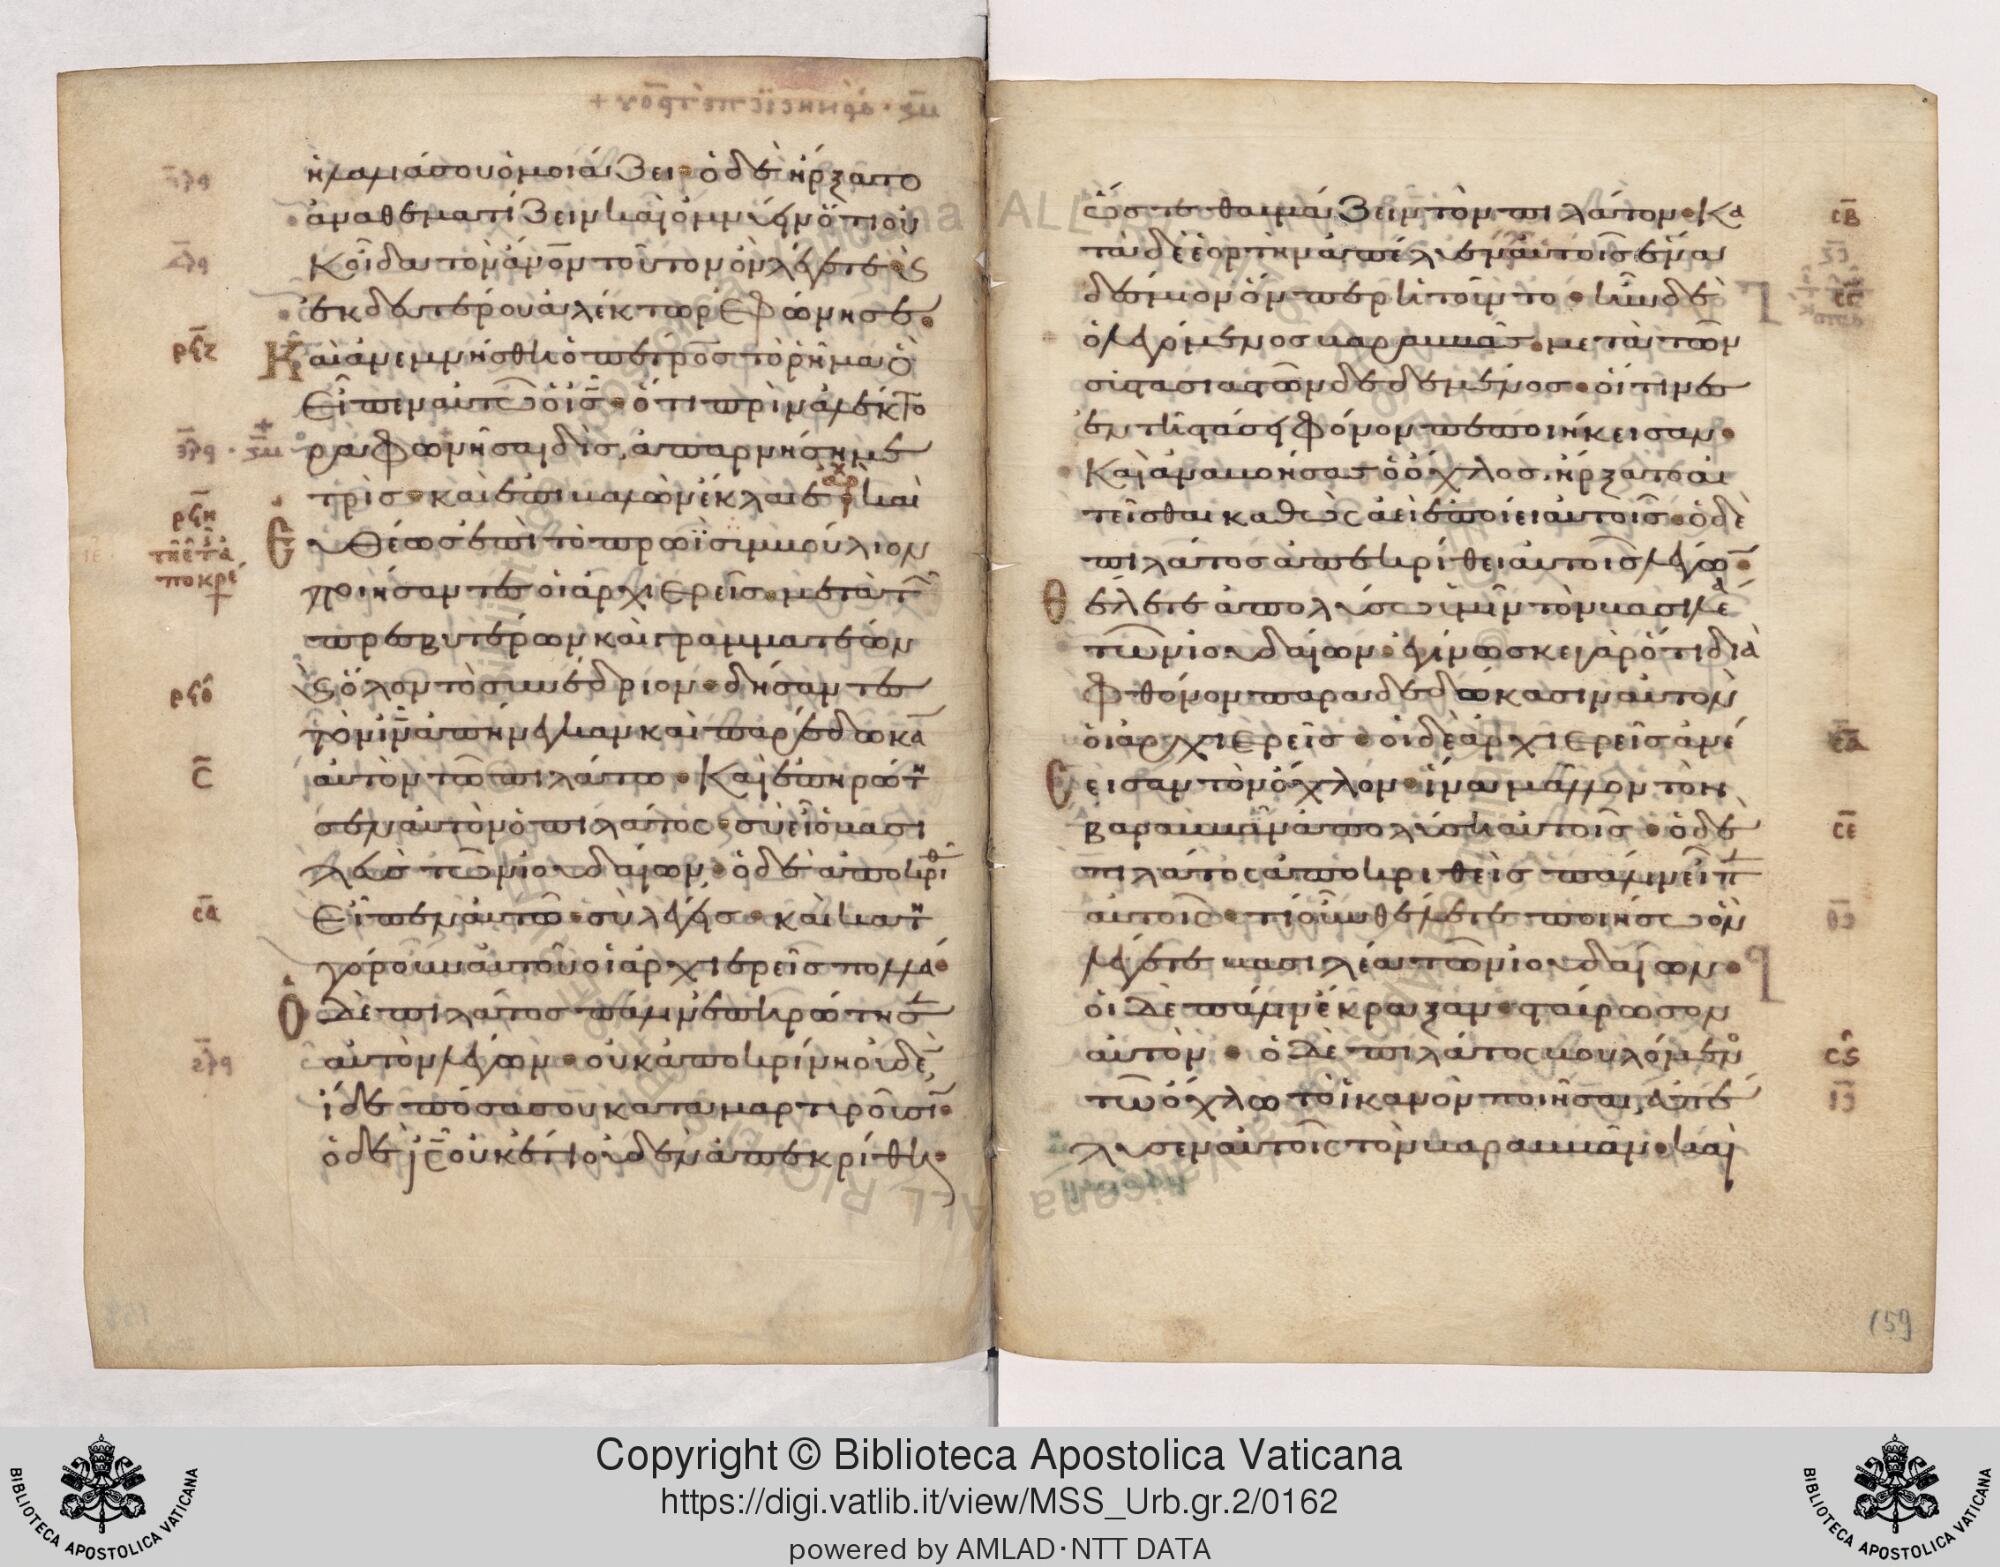 ἡ λαλιά σου ὁμοιάζει· ὁ δὲ ἤρξατο
ἀναθεματίζειν καὶ ὀμνύειν ὅτι οὐ
κ οἶδα τὸν ἄνον τοῦτον ὃν λέγετε· ϗ
ἐκ δευτέρου ἀλέκτωρ ἐφώνησε·
Καὶ ἀνεμνήσθη ὁ πέτρος τὸ ῥῆμα ὃ
εἶπεν αὐτῶ ὁ ις· ὅτι πρὶν ἀλέκτο
ρα φωνῆσαι δὶς, ἀπαρνήση με
τρίς· καὶ ἐπιβαλὼν ἔκλαιε· καὶ
Εὐθέως ἐπὶ τὸ πρωῒ συμβούλιον
ποιήσαντες οἱ ἀρχιερεῖς· μετὰ τ
πρεσβυτέρων καὶ γραμματέων
ϗ ὅλον τὸ συνέδριον· δήσαντες
τὸν ιν ἀπήνεγκαν καὶ παρέδωκα
αὐτὸν τῶ πιλάτω· Καὶ ἐπηρώτη
σεν αὐτὸν ὁ πιλάτος· σὺ εἶ ὁ βασι
λεὺς τῶν ἰουδαίων· ὁ δὲ ἀποκριθ
εἶπεν αὐτῶ· σὺ λέγεις· καὶ κατη
γόρουν αὐτοῦ οἱ ἀρχιερεῖς πολλά·
Ὁ δὲ πιλάτος πάλιν ἐπηρώτησεν
αὐτὸν λέγων· οὐκ ἀποκρίνη οὐδέ,
ἴδε πόσα σου καταμαρτυροῦσι·
ὁ δὲ ις οὐκέτι οὐδὲν ἀπεκρίθη·
ρϟζ
ρϟη
ρϟθ
σ
σα
ὥστε θαυμάζειν τὸν πιλάτον· Κα
τὰ δὲ ἑορτὴν ἀπέλυεν αὐτοῖς ἕνα
δέσμιον ὃν περ ἠτοῦντο· ἦν δὲ
ὁ λεγόμενος βαραββᾶς· μετὰ τῶν
συστασιαστῶν δεδεμένος· οἵτινες
ἐν τῆ στάσει φόνον πεποιήκεισαν·
Καὶ ἀναβοήσας ὁ ὄχλος, ἤρξατο αἰ
τεῖσθαι καθὼς ἀεὶ ἐποίει αὐτοῖς· ὁ δὲ
πιλάτος ἀπεκρίθει αὐτοῖς λέγω·
Θέλετε ἀπολύσω ὑμῖν τὸν βασιλέα
τῶν ἰουδαίων· ἐγίνωσκε γὰρ ὅτι διὰ
φθόνον παραδεδώκασιν αὐτὸν
ὁι ἀρχιερεῖς· οἱ δὲ ἀρχιερεῖς ἀνέ
Σεισαν τὸν ὄχλον· ἵνα μᾶλλον τὸν
βαραββᾶν ἀπολύση αὐτοῖς· ὁ δὲ
πιλάτος ἀποκριθεὶς πάλιν εἶπεν
αὐτοῖς· τί οὖν θέλετε ποιήσω ὃν
λέγετε βασιλέα τῶν ἰουδαίων·
ὁι δὲ πάλιν ἔκραξαν· σταύρωσον
αὐτόν· ὁ δὲ πιλάτος βουλόμενος
τῶ ὄχλω τὸ ἱκανὸν ποιῆσαι, ἀπέ
λυσεν αὐτοῖς τὸν βαραββᾶν· καὶ
σβ
σγ
σδ
σε
σς
159
Copyright © Biblioteca Apostolica Vaticana
https://digi.vatlib.it/view/MSS_Urb.gr.2/0162
powered by AMLAD·NTT DATA
BIBLIOTECA APOSTOLICA VATICANA
BIBLIOTECA APOSTOLICA VATICANA